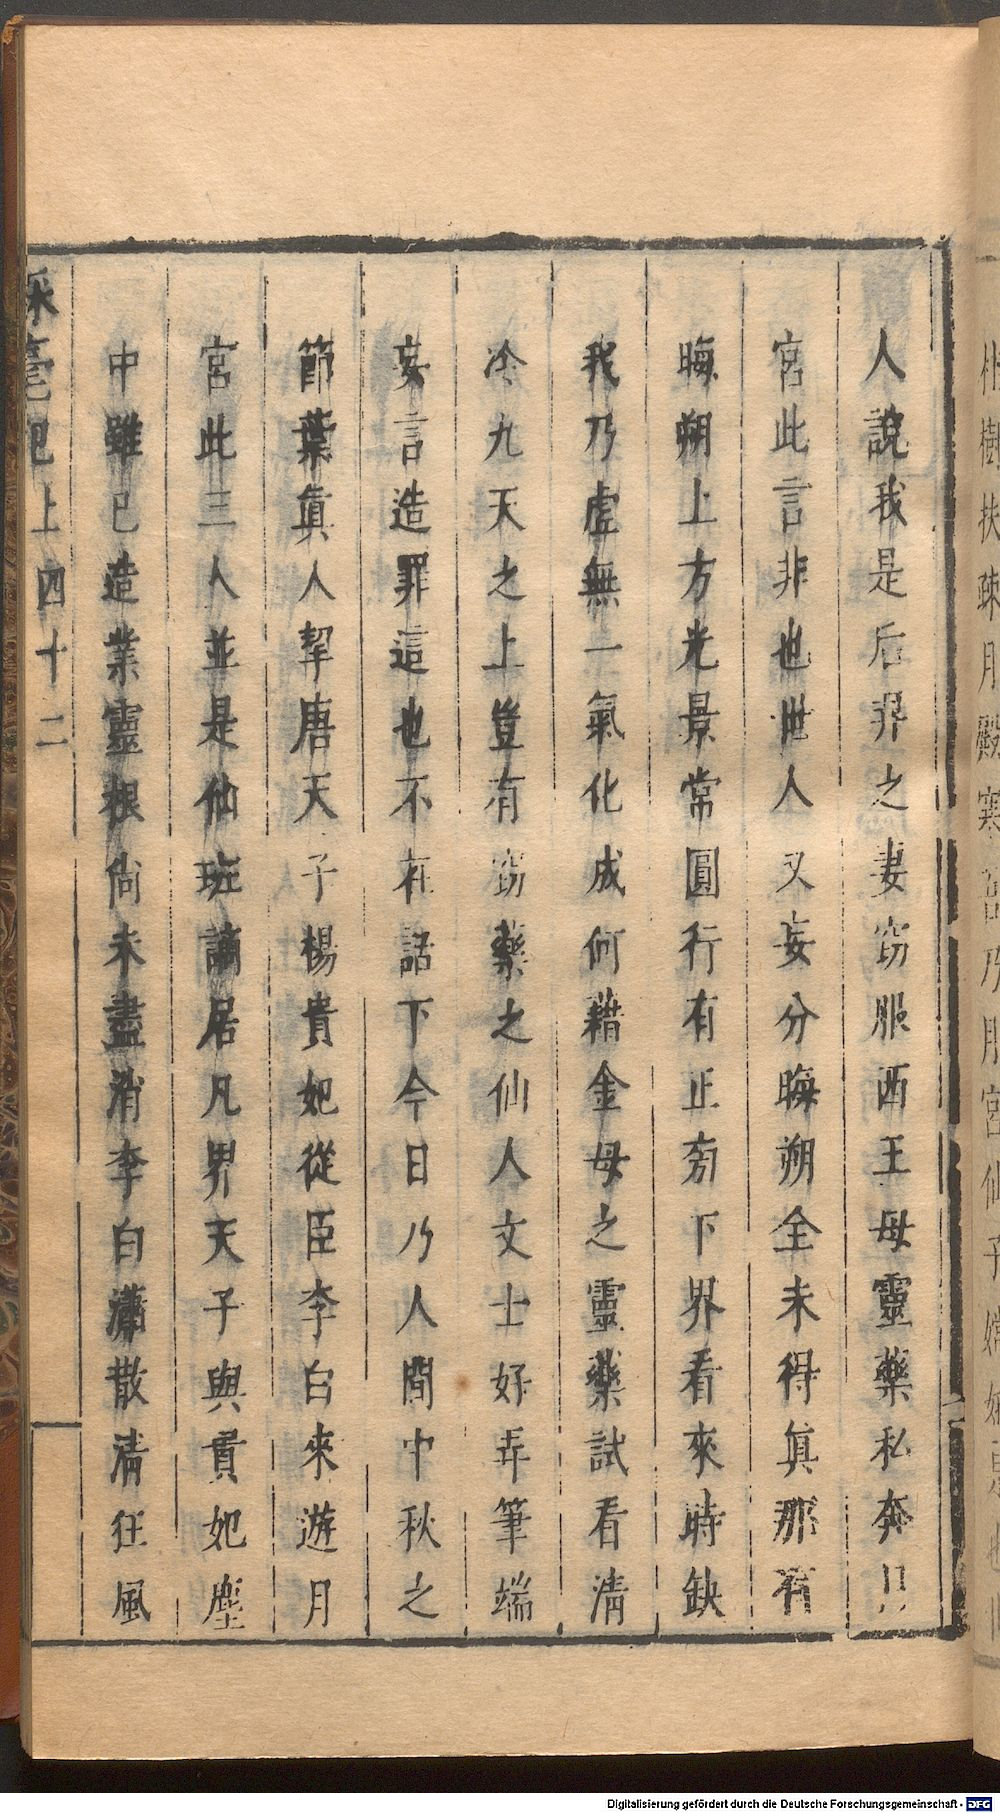 人說我是后羿之妻窃服西王母靈藥私奔月
宮此言非也世人又妄分晦朔全未得眞那有
晦朔上方光景常圓行有正旁下界看來時缺
我乃虛無一氣化成何藉金母之靈藥試看清
冷九天之上豈有窃藥之仙人文士好弄筆端
妄言造罪這也不在話下今日乃人間中秋之
節葉眞人挈唐天子楊貴妃從臣李白來遊月
宮此三人並是仙班謫居凡界天子與貴妃塵
中雖已造業靈根尙未盡消李白瀟散清狂風
綵毫記 上 四十二
Digitalisierung gefördert durch die Deutsche Forschungsgemeinschaft - DFG